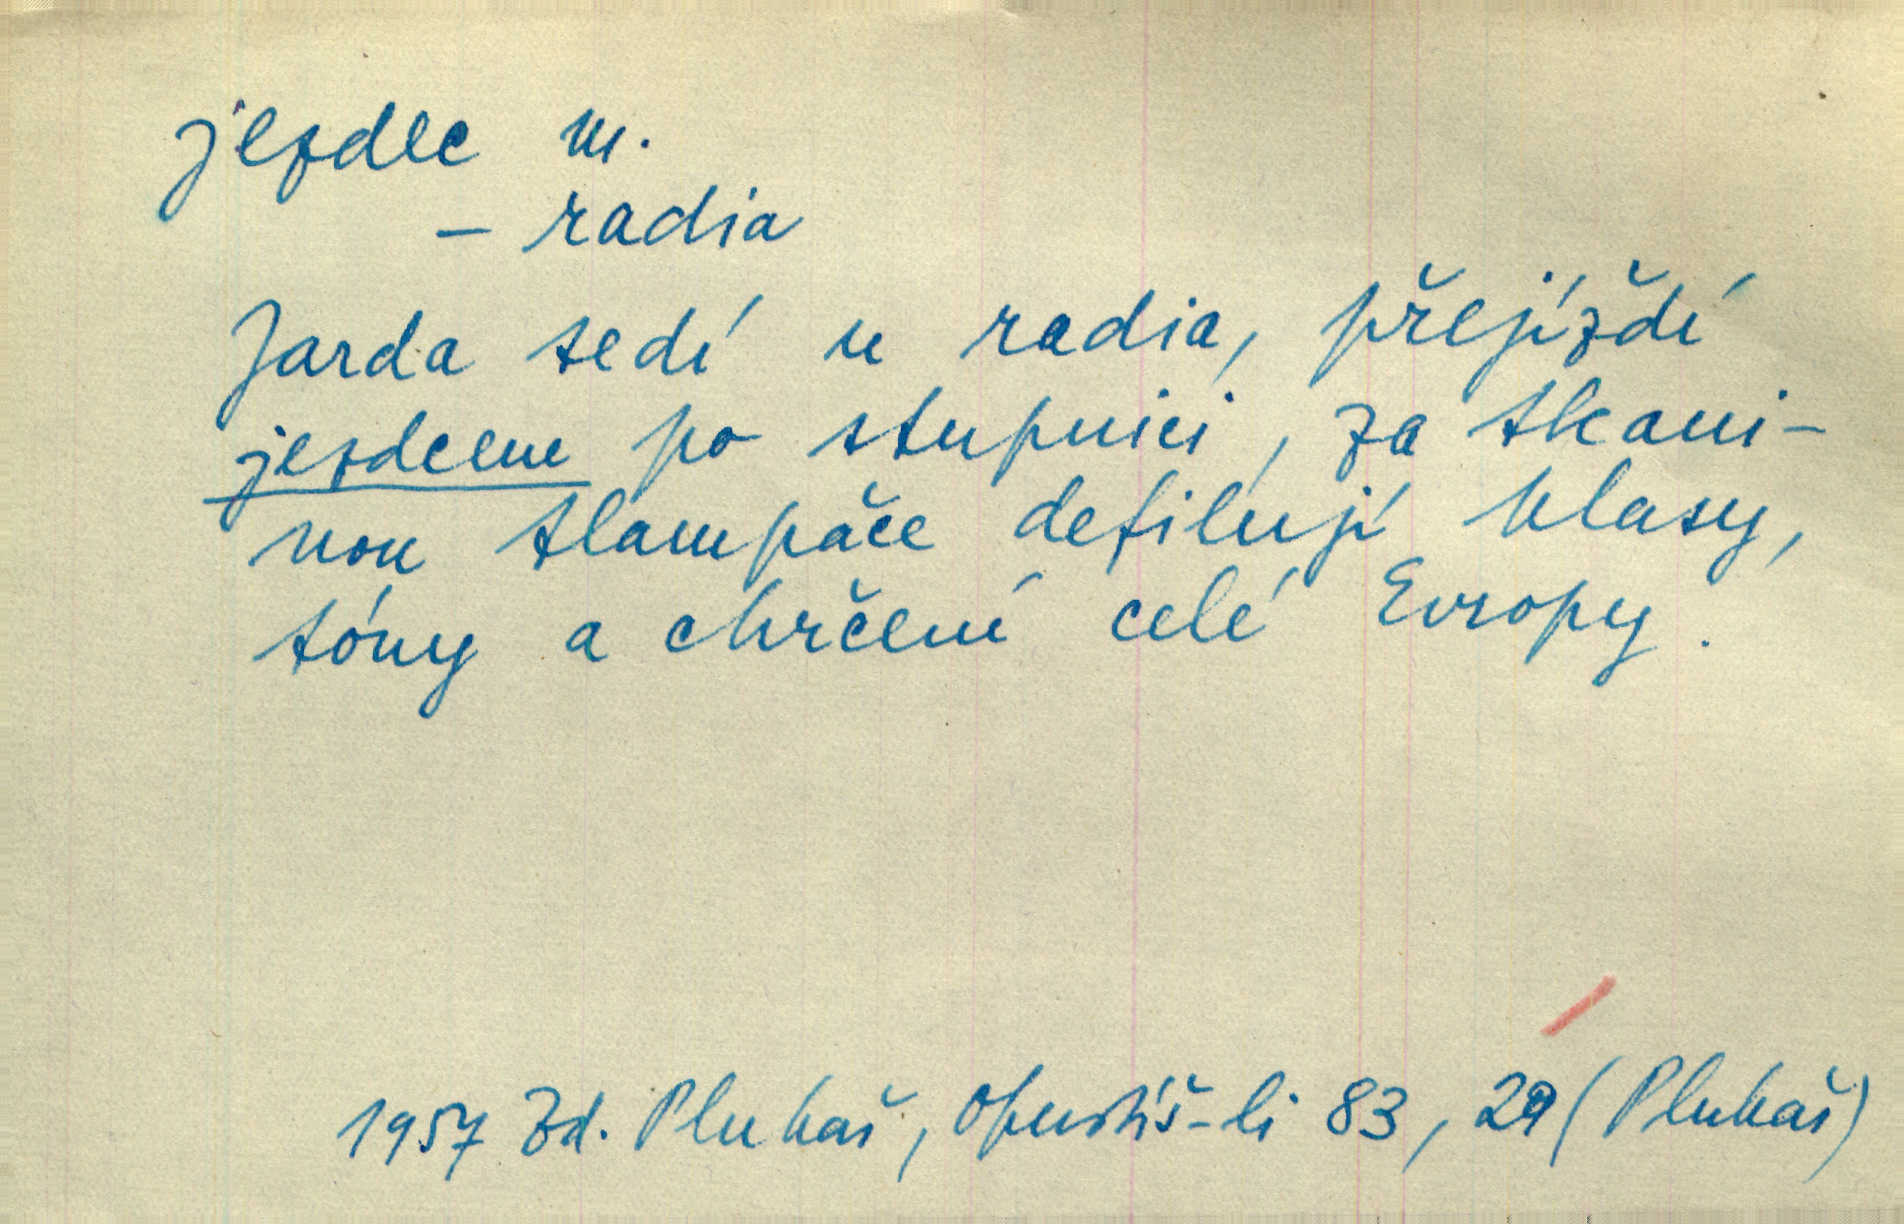 jezdec m.
– radia
Jarda sedí u radia, přejíždí
jezdcem po stupnici, za tkani-
nou tlampače defilují hlasy,
tóny a chrčení celé Evropy.
1957 Zd. Pluhař, Opustíš-li 83, 29 (Pluhař)